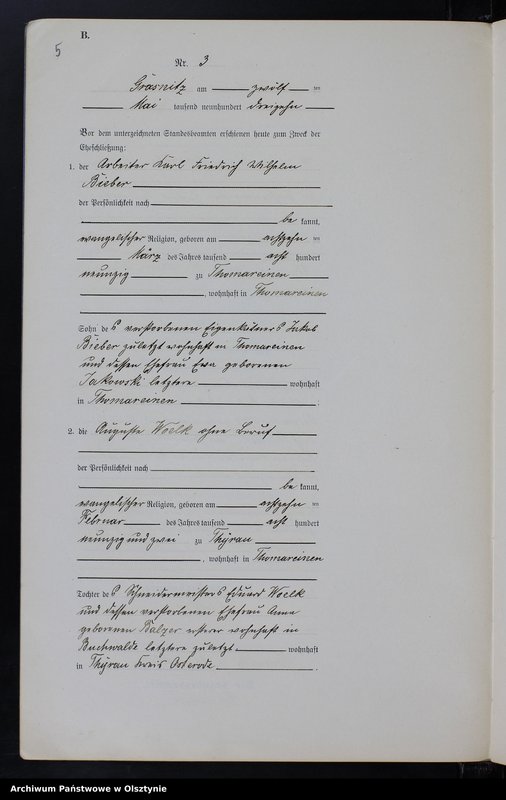 B.
5
Nr. 3
Grasnitz am zwölf ten
Mai tausend neunhundert dreizehn
Vor dem unterzeichneten Standesbeamten erschienen heute zum Zweck der
Eheschließung:
1. der Arbeiter Karl Friedrich Wilhelm
Bieber
der Persönlichkeit nach
be kannt,
evangelischer Religion, geboren am achtzehn ten
März des Jahres tausend acht hundert
neunzig zu Thomareinen
, wohnhaft in Thomareinen
Sohn des verstorbenen Eigenkätners Jakob
Bieber zuletzt wohnhaft in Thomareinen
und dessen Ehefrau Eva geborenen
Jakowski letztere wohnhaft
in Thomareinen .
2. die Auguste Woelk ohne Beruf
der Persönlichkeit nach
be kannt,
evangelischer Religion, geboren am achtzehn ten
Februar des Jahres tausend acht hundert
neunzig und zwei zu Thyrau
, wohnhaft in Thomareinen
Tochter des Schneidermeisters Eduard Woelk
und dessen verstorbenen Ehefrau Anna
geborenen Balzer ersterer wohnhaft in
Buchwalde letztere zuletzt wohnhaft
in Thyrau Kreis Osterode .
Archiwum Państwowe w Olsztynie